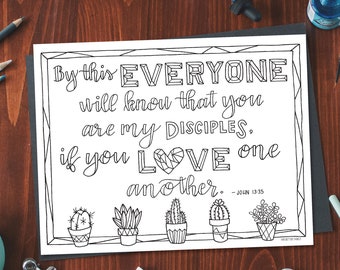 By this EVERYONE
will know that you
are my DISCIPLES,
if you LOVE one
another. - JOHN 13:35